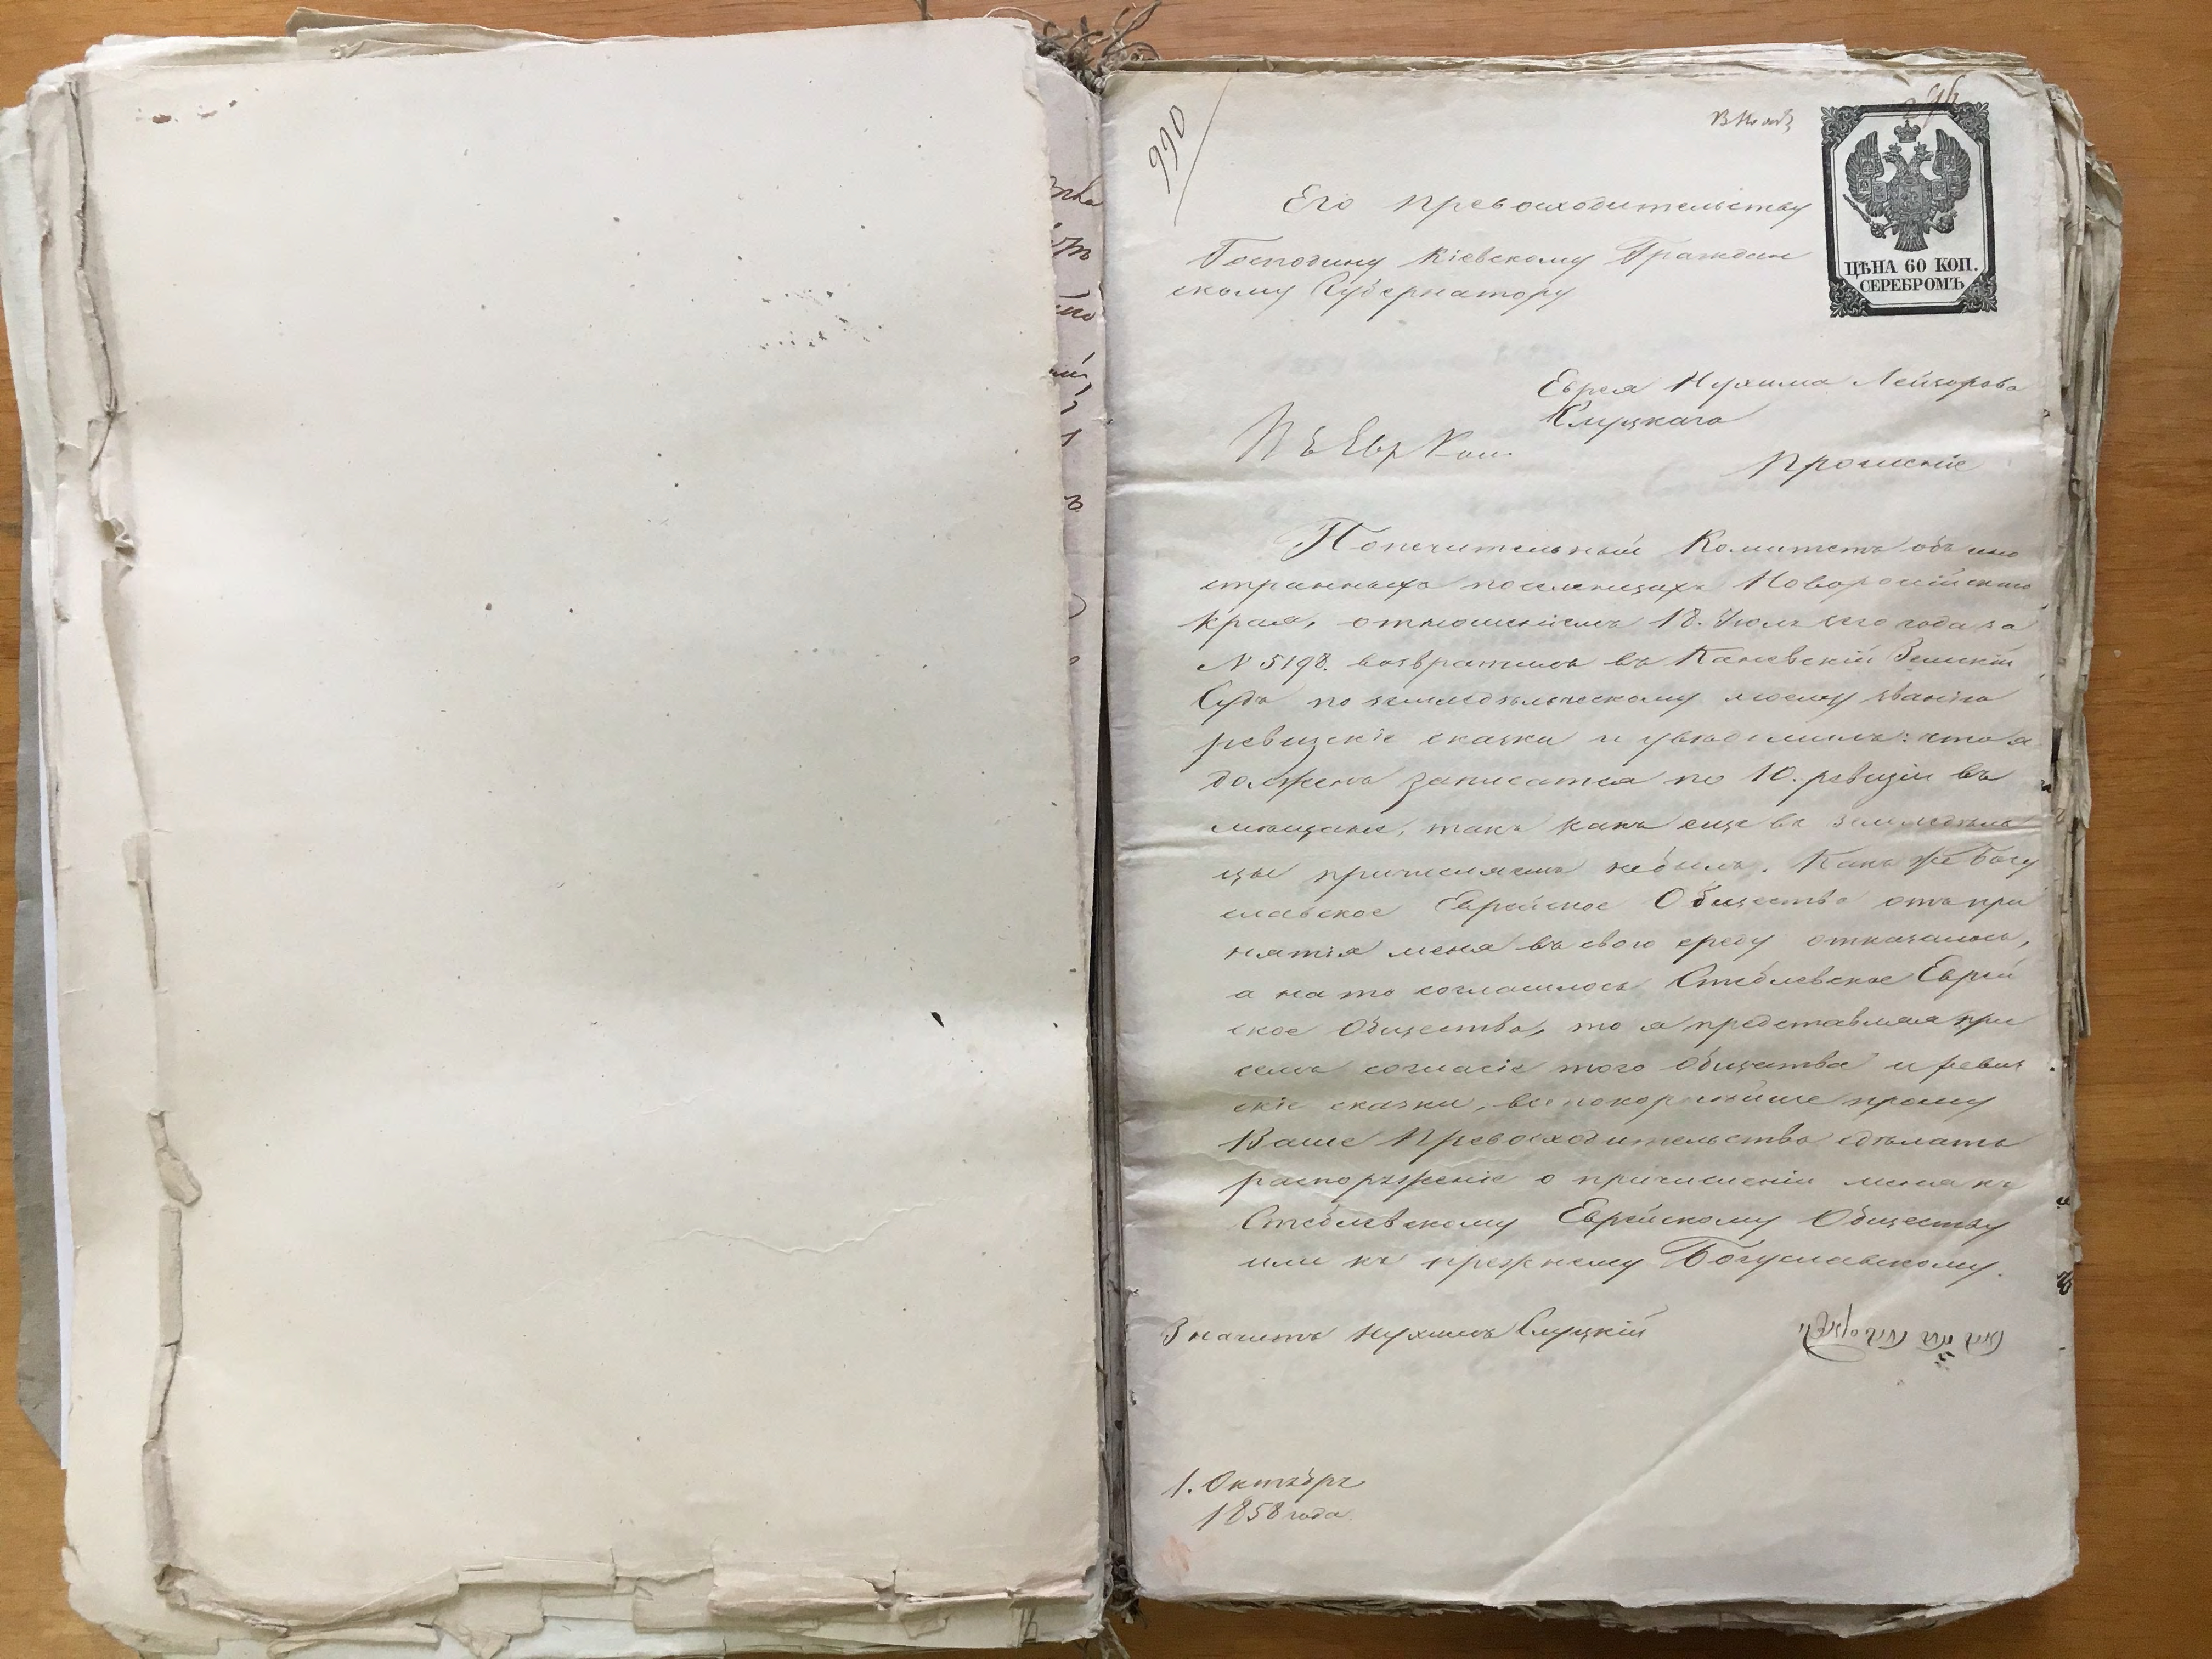 990
ЦѢНА 60 КОП.
СЕРЕБРОМЪ
Его превосходительству
Господину Кіевскому Граждан
скому Губернатору
Еврея Нухима Лейзорова
Слуцкаго
Прошеніе
Попечительный Комитетъ объ ино
странныхъ поселенцахъ Новоросійскаго
края, отношеніемъ 18. Іюля сего года за
N 5198. возвратилъ въ Каневскій Земскій
Судъ по земледѣльческому моему званію
ревизскіе сказки и увѣдомилъ: что я
долженъ записатся по 10. ревизіи въ
мѣщане, такъ какъ еще въ земледѣль
цы причисляемъ небылъ. Какъ же Богу
славское Еврейское Общество отъ при
нятія меня въ свою среду отказалось,
а на то согласилось Стеблевское Еврей
ское Общество, то я представляя при
семъ согласіе того общества и ревиз
скіе сказки, всепокорнѣйше прошу
Ваше Превосходительство сдѣлать
распоряженіе о причисленіи меня къ
Стеблевскому Еврейскому Обществу
или къ прежнему Богуславскому.
Значитъ Нухимъ Слуцкій
1. Октября
1858 года.